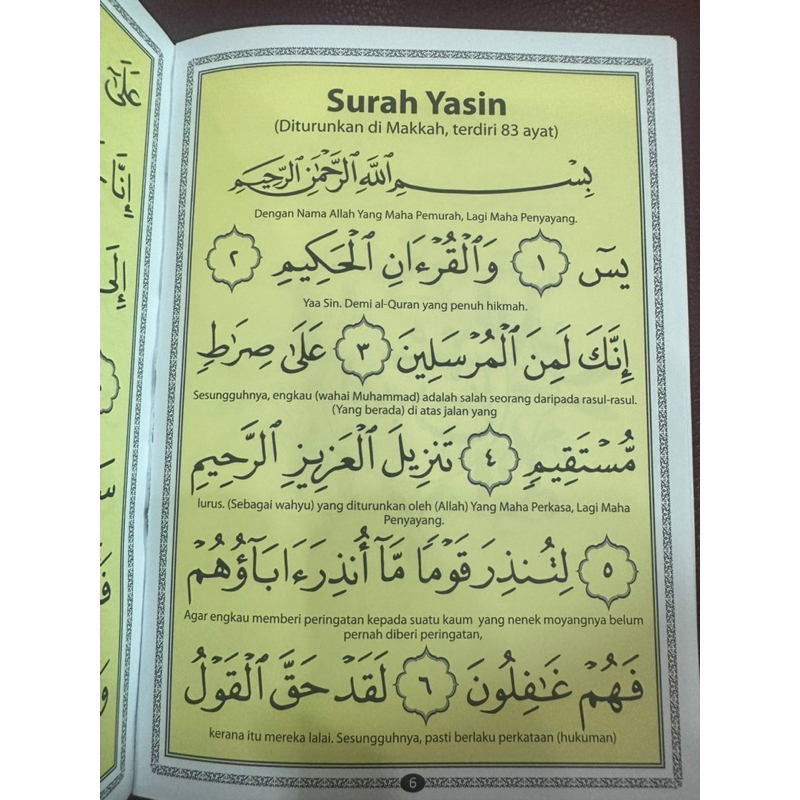 Surah Yasin
(Diturunkan di Makkah, terdiri 83 ayat)
بِسْمِ اللَّهِ الرَّحْمَٰنِ الرَّحِيمِ
Dengan Nama Allah Yang Maha Pemurah, Lagi Maha Penyayang.
يسٓ ١ وَٱلْقُرْءَانِ ٱلْحَكِيمِ ٢
Yaa Sin. Demi al-Quran yang penuh hikmah.
إِنَّكَ لَمِنَ ٱلْمُرْسَلِينَ ٣ عَلَىٰ صِرَٰطٍ
Sesungguhnya, engkau (wahai Muhammad) adalah salah seorang daripada rasul-rasul.
(Yang berada) di atas jalan yang
مُّسْتَقِيمٍ ٤ تَنزِيلَ ٱلْعَزِيزِ ٱلرَّحِيمِ
lurus. (Sebagai wahyu) yang diturunkan oleh (Allah) Yang Maha Perkasa, Lagi Maha
Penyayang.
٥ لِتُنذِرَ قَوْمًا مَّآ أُنذِرَ ءَابَآؤُهُمْ
Agar engkau memberi peringatan kepada suatu kaum yang nenek moyangnya belum
pernah diberi peringatan,
فَهُمْ غَٰفِلُونَ ٦ لَقَدْ حَقَّ ٱلْقَوْلُ
kerana itu mereka lalai. Sesungguhnya, pasti berlaku perkataan (hukuman)
6